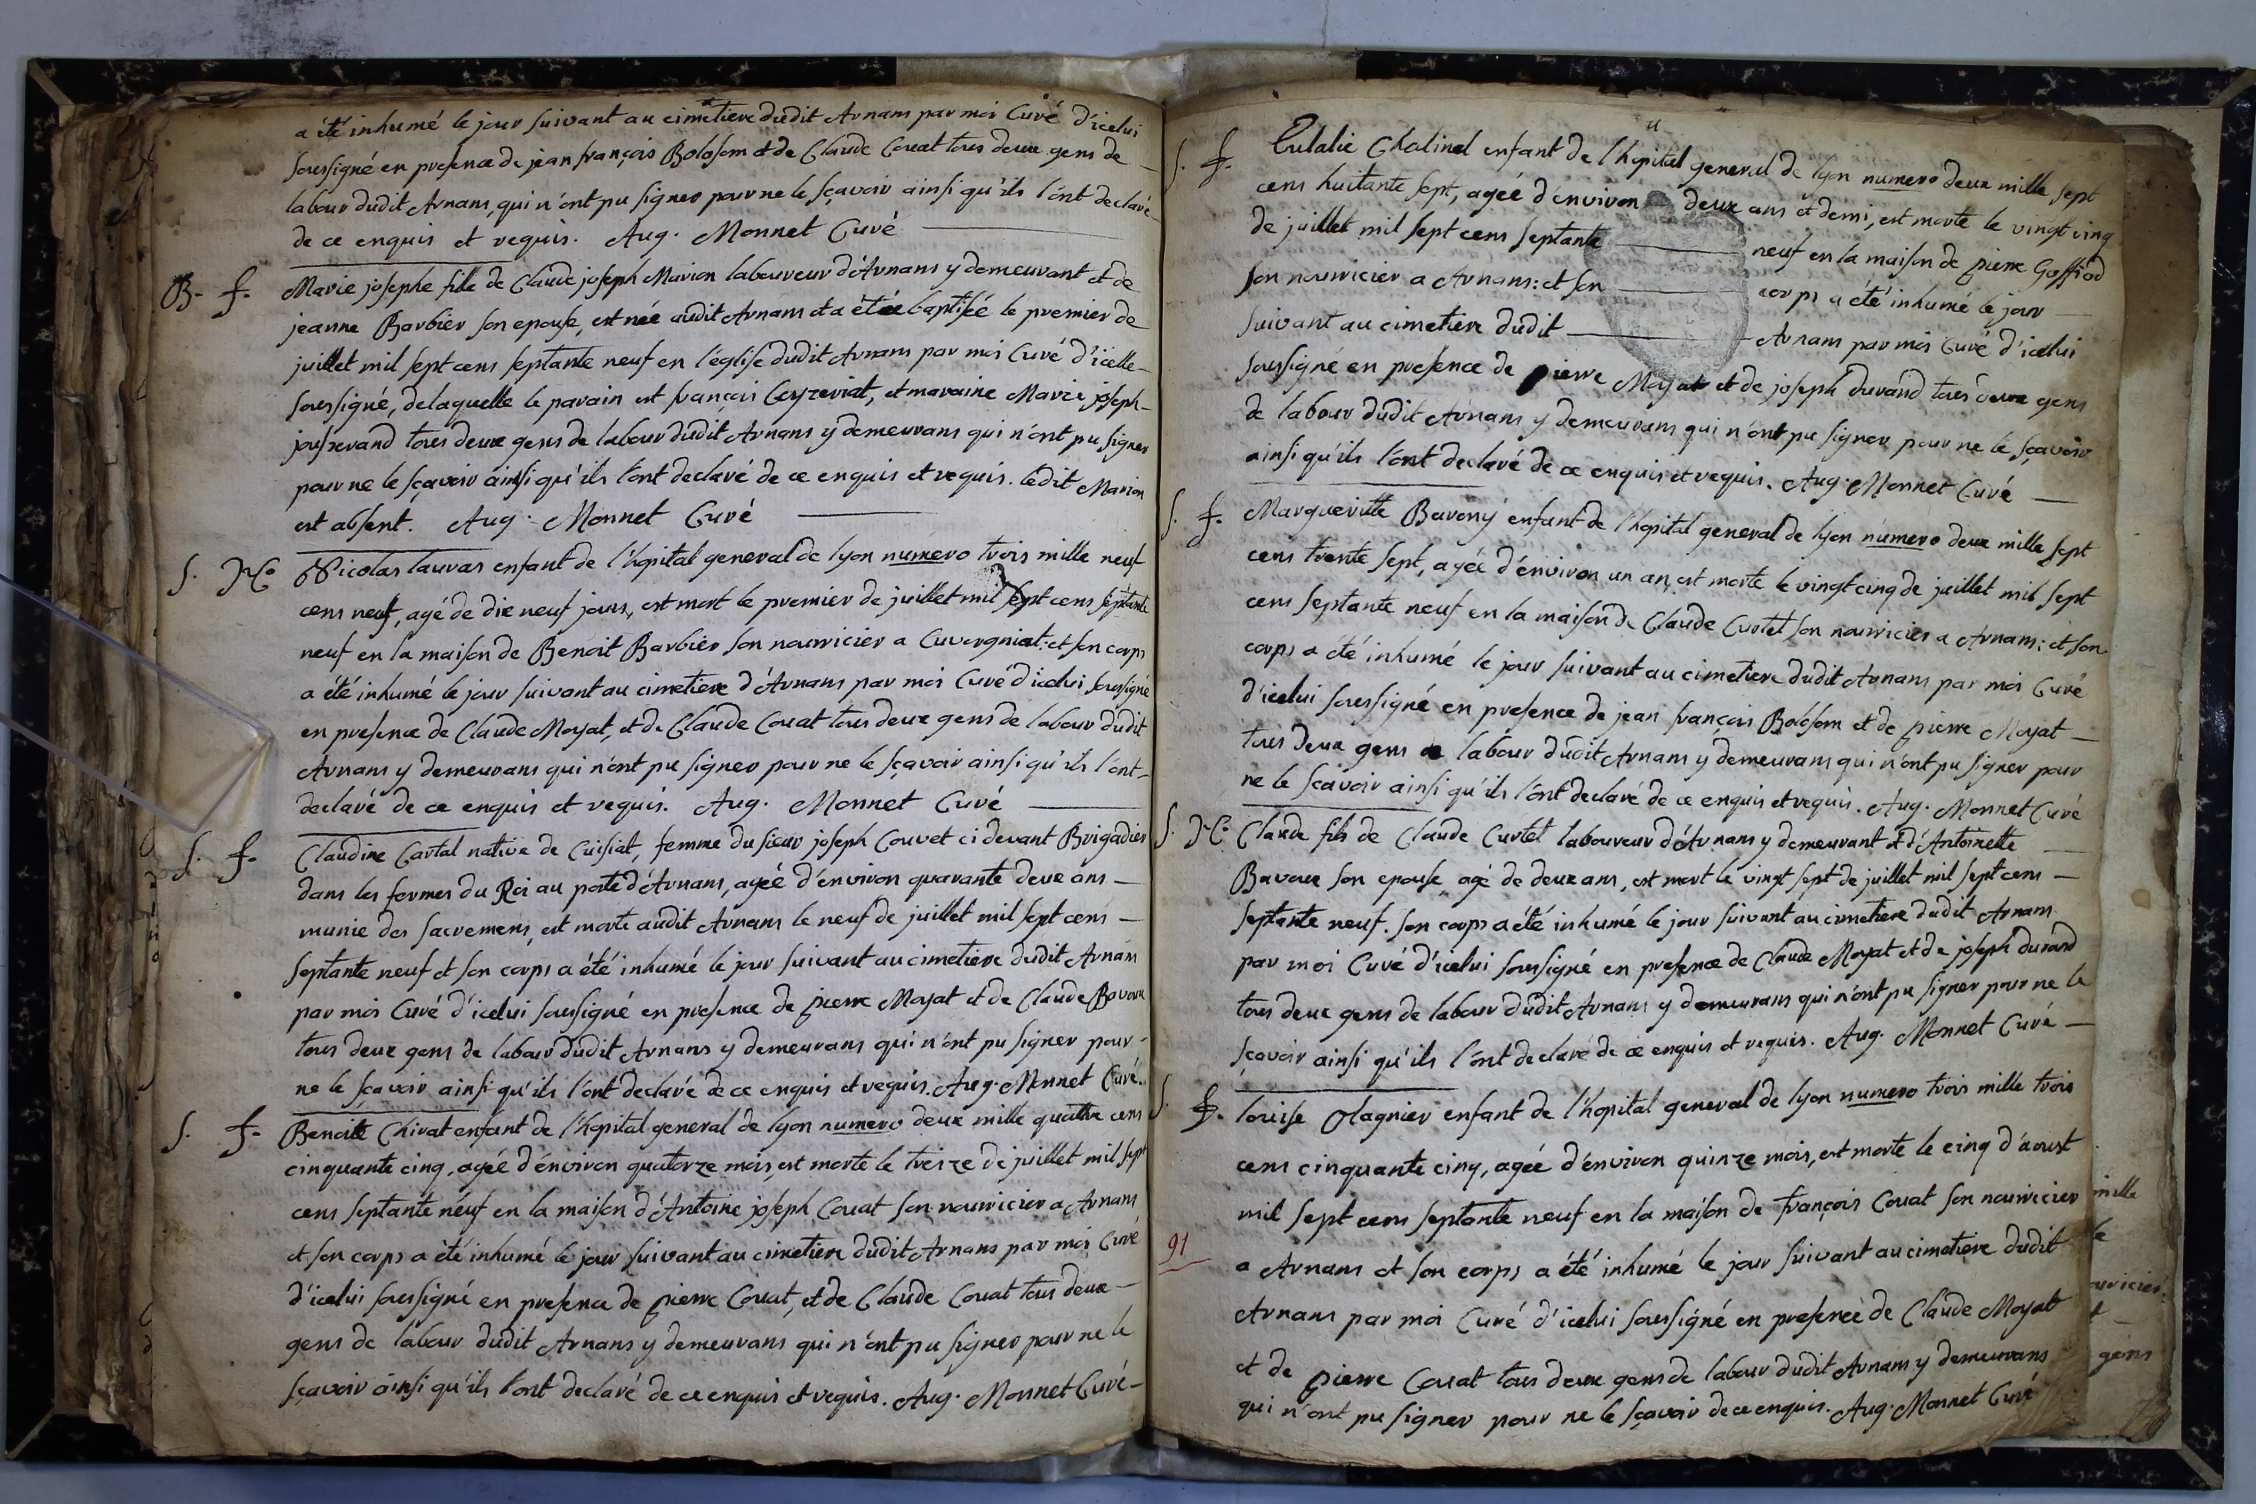 a été inhumé le jour suivant au cimetiere dudit Arnans par moi Curé d'icelui
soussigné en presence de jean françois Bolosom et de Claude Couat tous deux gens de
labour dudit Arnans, qui n'ont pu signer pour ne le sçavoir ainsi qu'ils l'ont declaré
de ce enquis et requis. Aug. Monnet Curé
B. f. Marie josephe fille de Claude joseph Marion laboureur d'Arnans y demeurant et de
jeanne Barbier son epouse, est née audit Arnans et a étée baptisée le premier de
juillet mil sept cens septante neuf en l'église dudit Arnans par moi Curé d'icelle
soussigné, de laquelle le parain est françois Ceyzeriat, et maraine Marie joseph
jousserand tous deux gens de labour dudit Arnans y demeurans qui n'ont pu signer
pour ne le sçavoir ainsi qu'ils l'ont declaré de ce enquis et requis. ledit Marion
est absent. Aug. Monnet Curé
S. N. Nicolas lauras enfant de l'hopital general de lyon numero trois mille neuf
cens neuf, agé de dix neuf jours, est mort le premier de juillet mil sept cens septante
neuf en la maison de Benoit Barbier son nourricier a Cuvergniat: et son corps
a été inhumé le jour suivant au cimetiere d'Arnans par moi Curé d'icelui soussigné
en presence de Claude Moyat, et de Claude Couat tous deux gens de labour dudit
Arnans y demeurans qui n'ont pu signer pour ne le sçavoir ainsi qu'ils l'ont
declaré de ce enquis et requis. Aug. Monnet Curé
S. f. Claudine Cartal native de Cuisiat, femme du sieur joseph Couvet ci devant Brigadier
dans les fermes du Roi au poste d'Arnans, agée d'environ quarante deux ans
munie des sacremens, est morte audit Arnans le neuf de juillet mil sept cens
septante neuf et son corps a été inhumé le jour suivant au cimetiere dudit Arnans
par moi Curé d'icelui soussigné en presence de pierre Moyat et de Claude Bavoux
tous deux gens de labour dudit Arnans y demeurans qui n'ont pu signer pour
ne le sçavoir ainsi qu'ils l'ont declaré de ce enquis et requis. Aug. Monnet Curé.
S. f. Benoite Chirat enfant de l'hopital general de lyon numero deux mille quatre cens
cinquante cinq, agée d'environ quatorze mois, est morte le treize de juillet mil sept
cens septante neuf en la maison d'Antoine joseph Couat son nourricier a Arnans
et son corps a été inhumé le jour suivant au cimetiere dudit Arnans par moi Curé
d'icelui soussigné en presence de pierre Couat, et de Claude Couat tous deux
gens de labour dudit Arnans y demeurans qui n'ont pu signer pour ne le
sçavoir ainsi qu'ils l'ont declaré de ce enquis et requis. Aug. Monnet Curé
S. f. Eulalie Chalinel enfant de l'hopital general de lyon numero deux mille sept
cens huitante sept, agée d'environ deux ans et demi, est morte le vingt cinq
de juillet mil sept cens septante neuf en la maison de pierre Goffiod
son nourricier a Arnans: et son corps a été inhumé le jour
suivant au cimetiere dudit Arnans par moi Curé d'icelui
soussigné en presence de pierre Moyat et de joseph durand tous deux gens
de labour dudit Arnans y demeurans qui n'ont pu signer pour ne le sçavoir
ainsi qu'ils l'ont declaré de ce enquis et requis. Aug. Monnet Curé
S. f. Margueritte Barony enfant de l'hopital general de lyon numero deux mille sept
cens trente sept, agée d'environ un an, est morte le vingt cinq de juillet mil sept
cens septante neuf en la maison de Claude Curtet son nourricier a Arnans: et son
corps a été inhumé le jour suivant au cimetiere dudit Arnans par moi Curé
d'icelui soussigné en presence de jean françois Bolosom et de pierre Moyat
tous deux gens de labour dudit Arnans y demeurans qui n'ont pu signer pour
ne le sçavoir ainsi qu'ils l'ont declaré de ce enquis et requis. Aug. Monnet Curé
S. N. Claude fils de Claude Curtet laboureur d'Arnans y demeurant et d'Antoinette
Bavoux son epouse agé de deux ans, est mort le vingt sept de juillet mil sept cens
septante neuf. son corps a été inhumé le jour suivant au cimetiere dudit Arnans
par moi Curé d'icelui soussigné en presence de Claude Moyat et de joseph durand
tous deux gens de labour dudit Arnans y demeurans qui n'ont pu signer pour ne le
sçavoir ainsi qu'ils l'ont declaré de ce enquis et requis. Aug. Monnet Curé
S. f. louise Olagnier enfant de l'hopital general de lyon numero trois mille trois
cens cinquante cinq, agée d'environ quinze mois, est morte le cinq d'aoust
mil sept cens septante neuf en la maison de françois Couat son nourricier
91
a Arnans et son corps a été inhumé le jour suivant au cimetiere dudit
Arnans par moi Curé d'icelui soussigné en presence de Claude Moyat
et de pierre Couat tous deux gens de labour dudit Arnans y demeurans
qui n'ont pu signer pour ne le sçavoir de ce enquis. Aug. Monnet Curé
mille
gens